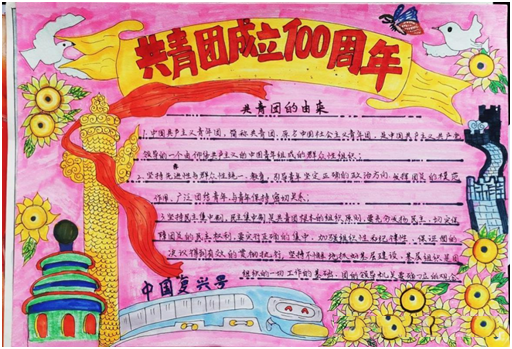 共青团成立100周年
共青团的由来
1.中国共产主义青年团，简称共青团，原名中国社会主义青年团，是中国共产主义共产党
领导的一个由信仰共产主义的中国青年组成的群众性组织；
2.坚持先进性与群众性统一，教育引导青年坚定正确的政治方向，发挥团员的模范
作用，广泛团结青年，与青年保持密切关系；
3.坚持民主集中制，民主集中制是共青团根本的组织原则，要充分发扬民主，切实保
障团员的民主权利，要实行正确的集中，加强组织性和纪律性，保证团的
决议得到有效的贯彻执行，坚持不懈地抓好基层建设，基层组织是团
组织的一切工作的基础，团的领导机关要确立
中国复兴号